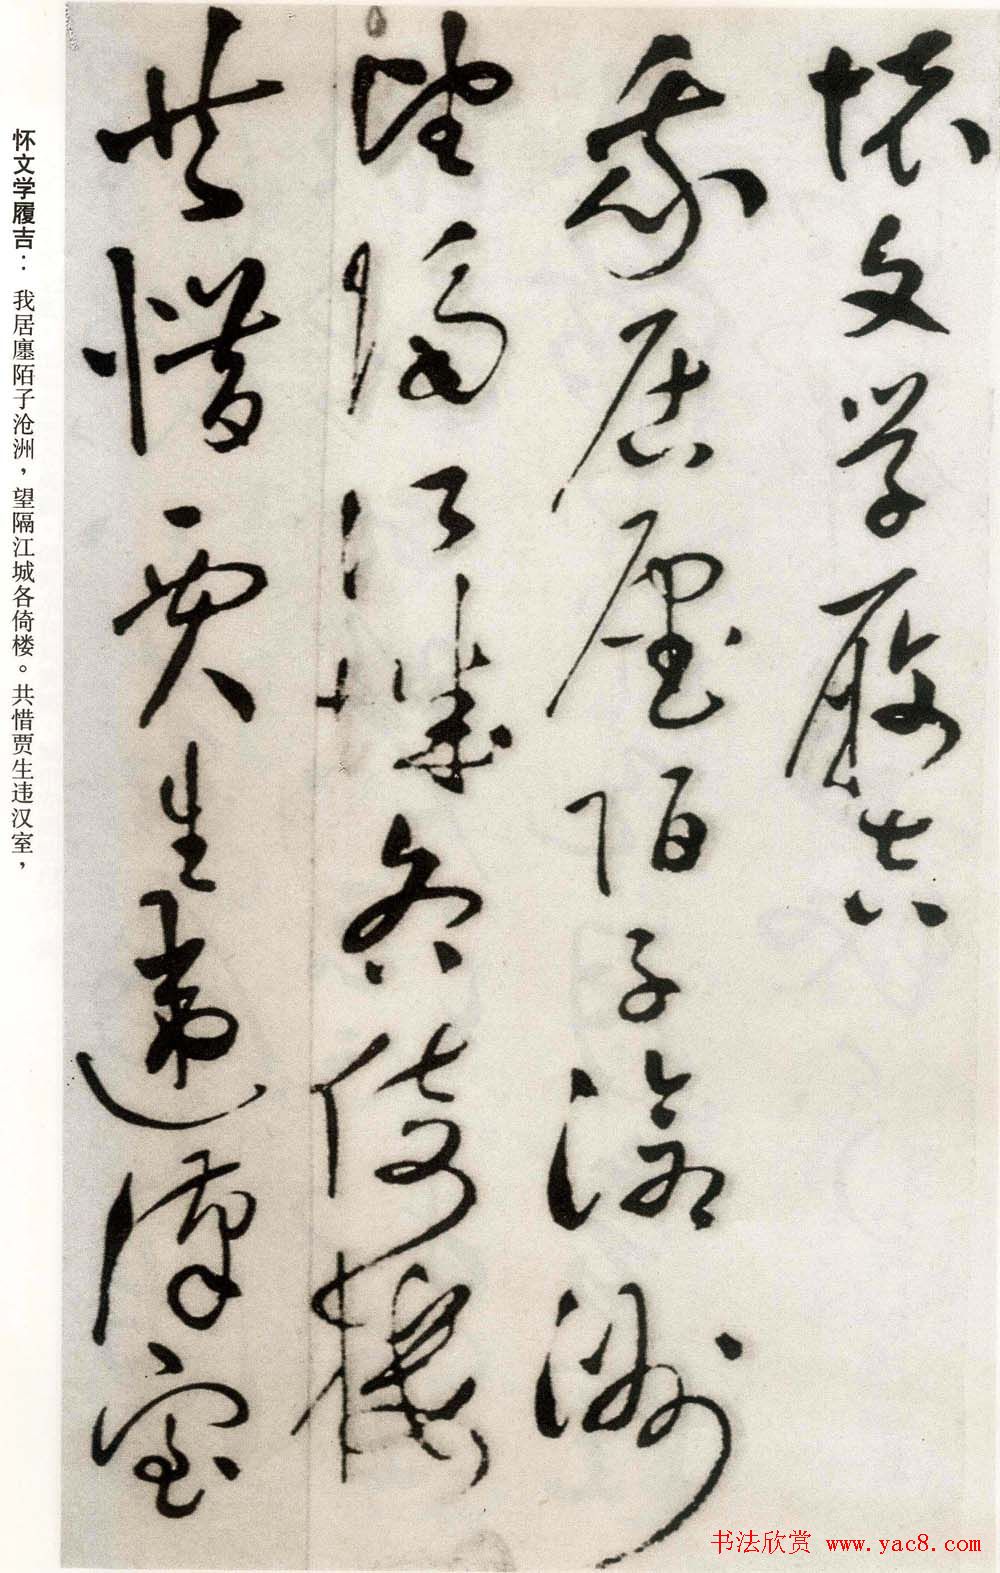 懷文學履吉
我居廛陌子滄洲
望隔江城各倚樓
共惜賈生違漢室
怀文学履吉：我居廛陌子沧洲，望隔江城各倚楼。共惜贾生违汉室，
书法欣赏 www.yac8.com